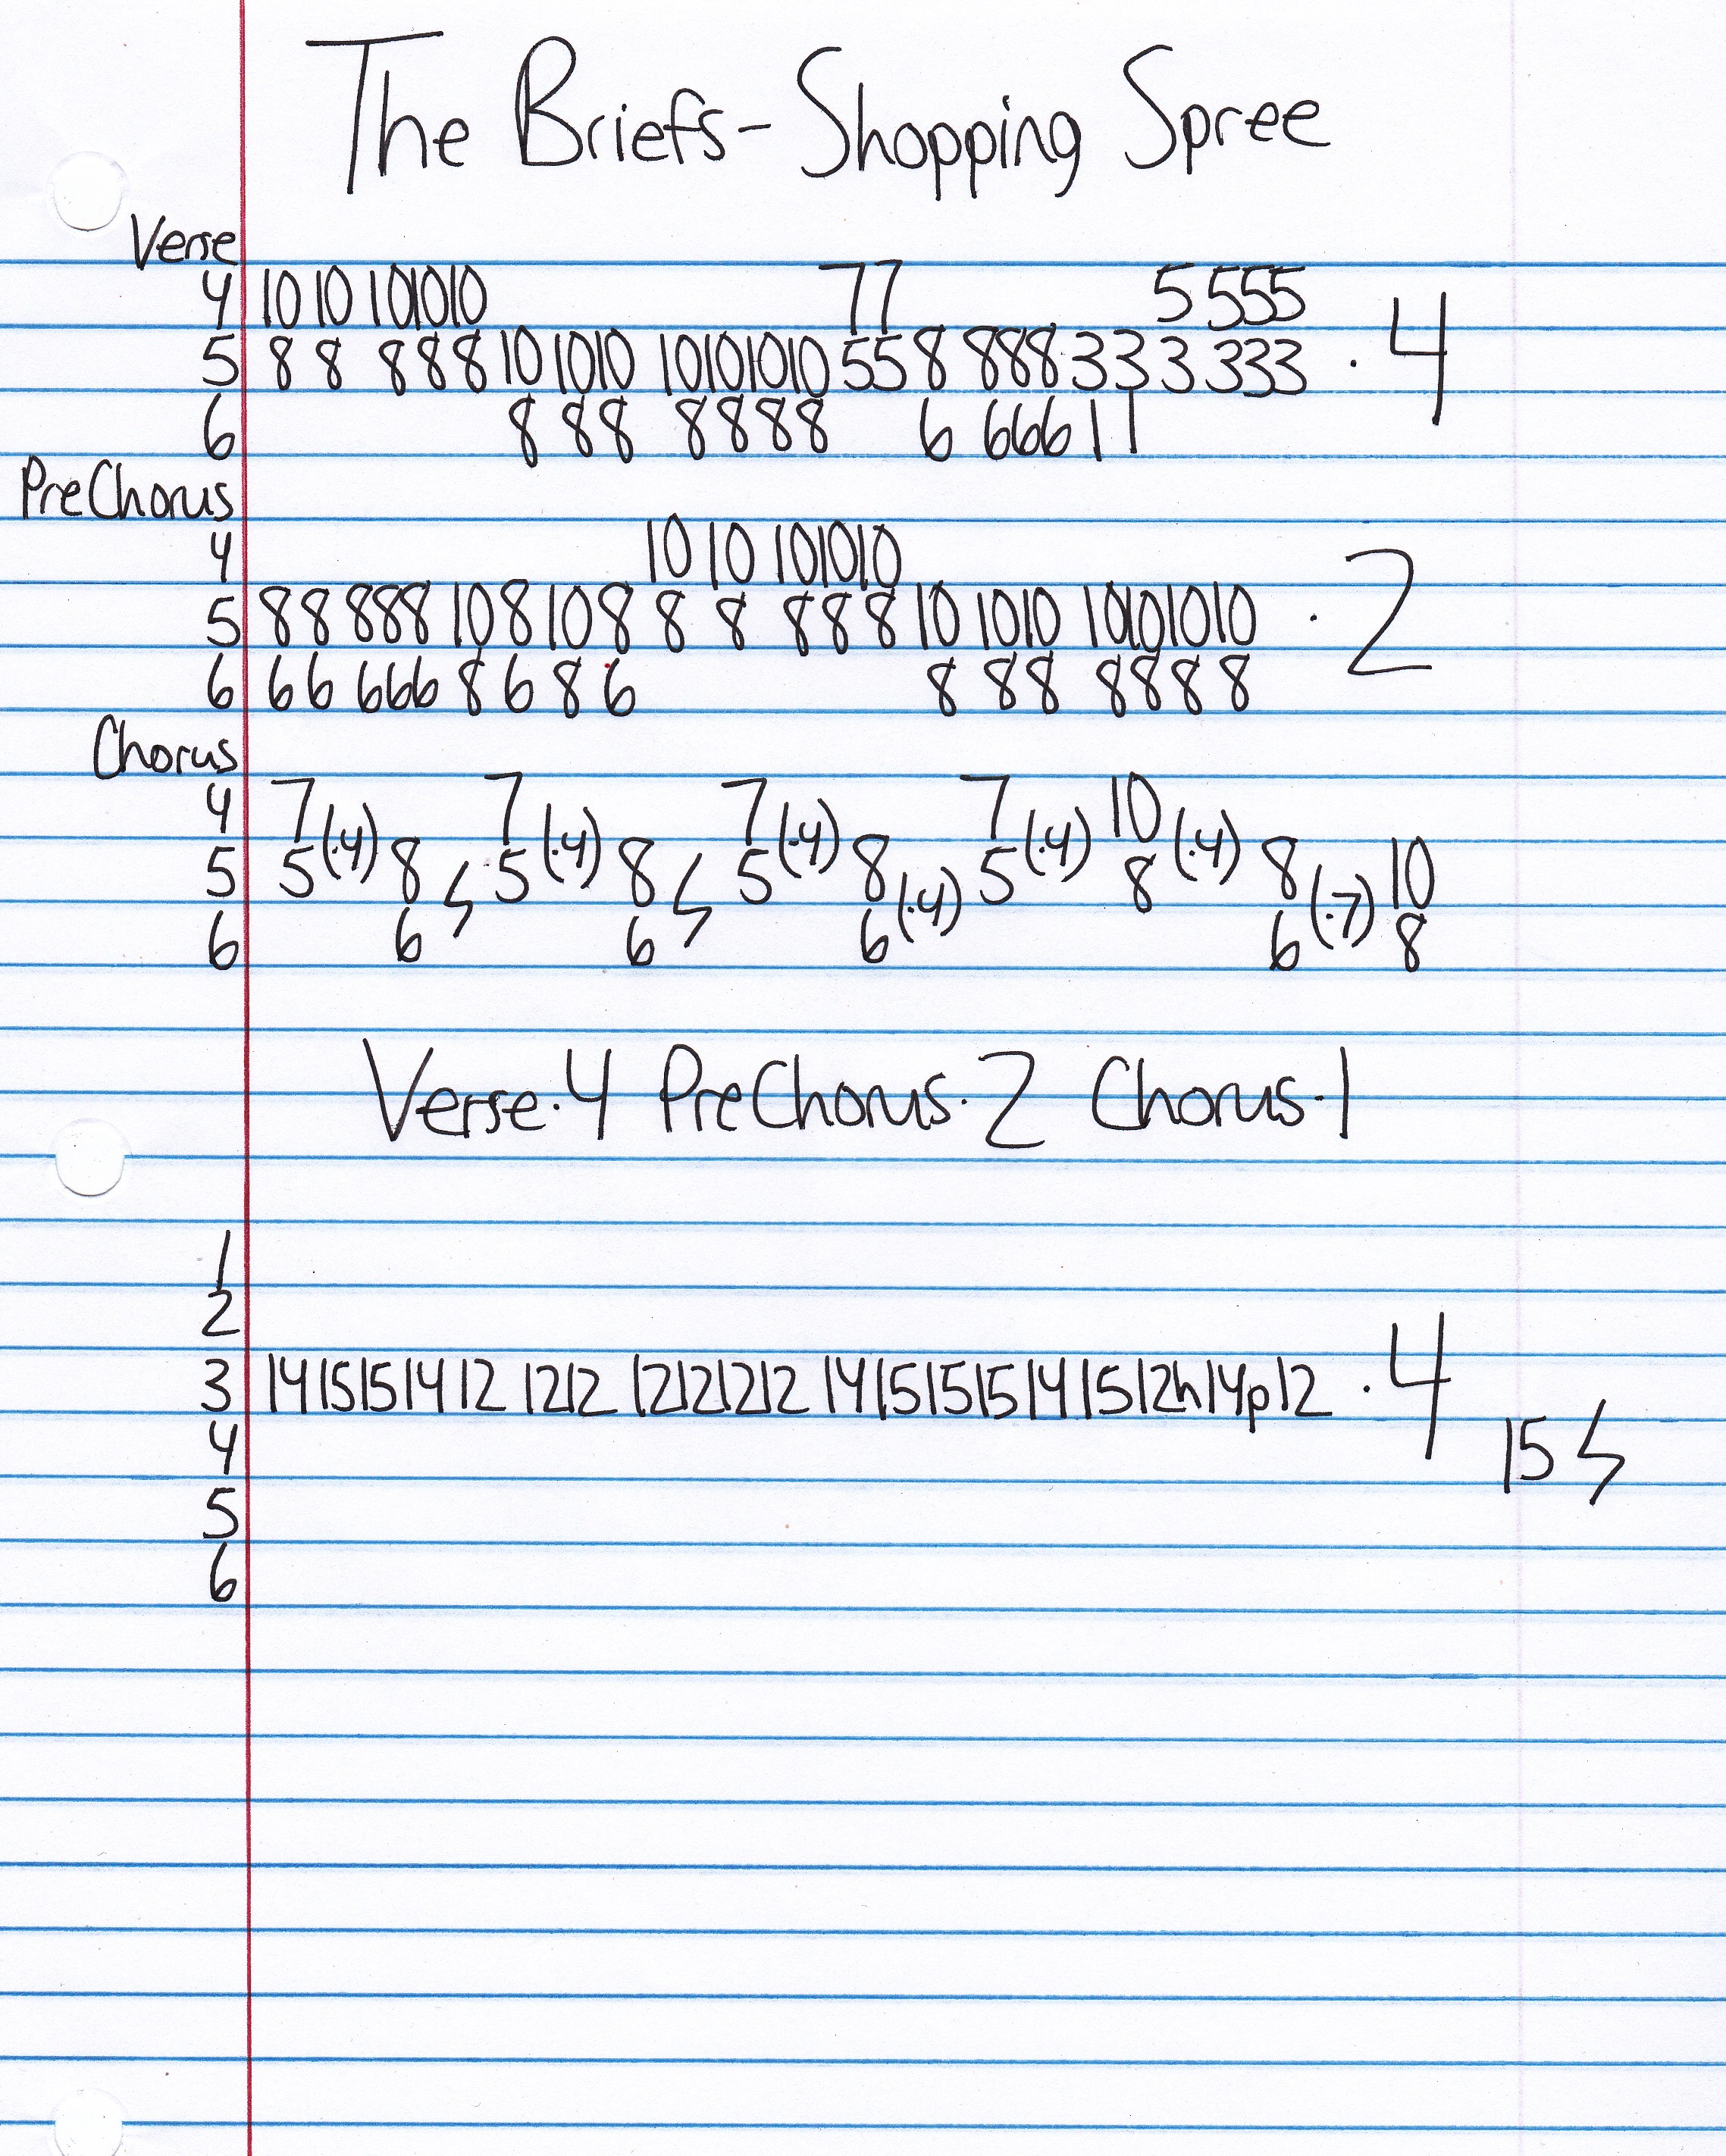 The Briefs - Shopping Spree
Verse
4 10 10 10 10 10 7 7 5 5 5 5
5 8 8 8 8 8 10 10 10 10 10 10 10 5 5 8 8 8 8 3 3 3 3 3 3 · 4
6 8 8 8 8 8 8 8 6 6 6 6 1 1
PreChorus
4 10 10 10 10 10
5 8 8 8 8 8 10 8 10 8 8 8 8 8 8 10 10 10 10 10 10 10 · 2
6 6 6 6 6 6 8 6 8 6 8 8 8 8 8 8 8
Chorus
4 7 (·4) 7 (·4) 7 (·4) 7 (·4) 10 (·4)
5 5 8 5 8 5 8 5 8 8 10
6 6 6 6 (·4) 6 (·7) 8
Verse·4 PreChorus·2 Chorus·1
1
2
3 14 15 15 14 12 12 12 12 12 12 12 14 15 15 15 14 15 12h14p12 · 4
4 15
5
6